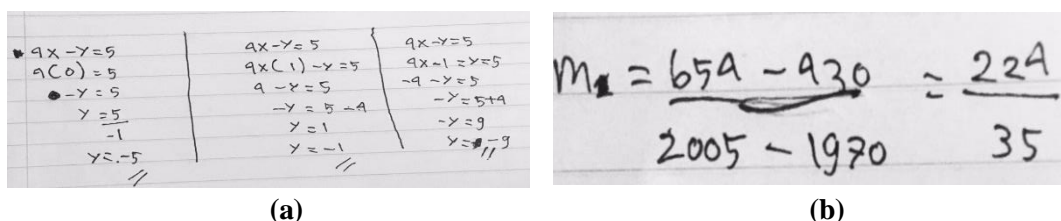 4x - y = 5
4(0) = 5
- y = 5
y = 5
-1
y = -5
4x - y = 5
4x(1) - y = 5
4 - y = 5
- y = 5 - 4
y = 1
y = -1
4x - y = 5
4x - 1 = y = 5
-4 - y = 5
- y = 5 + 4
- y = 9
y = -9
(a)
m = 654 - 430 = 224
2005 - 1970 35
(b)